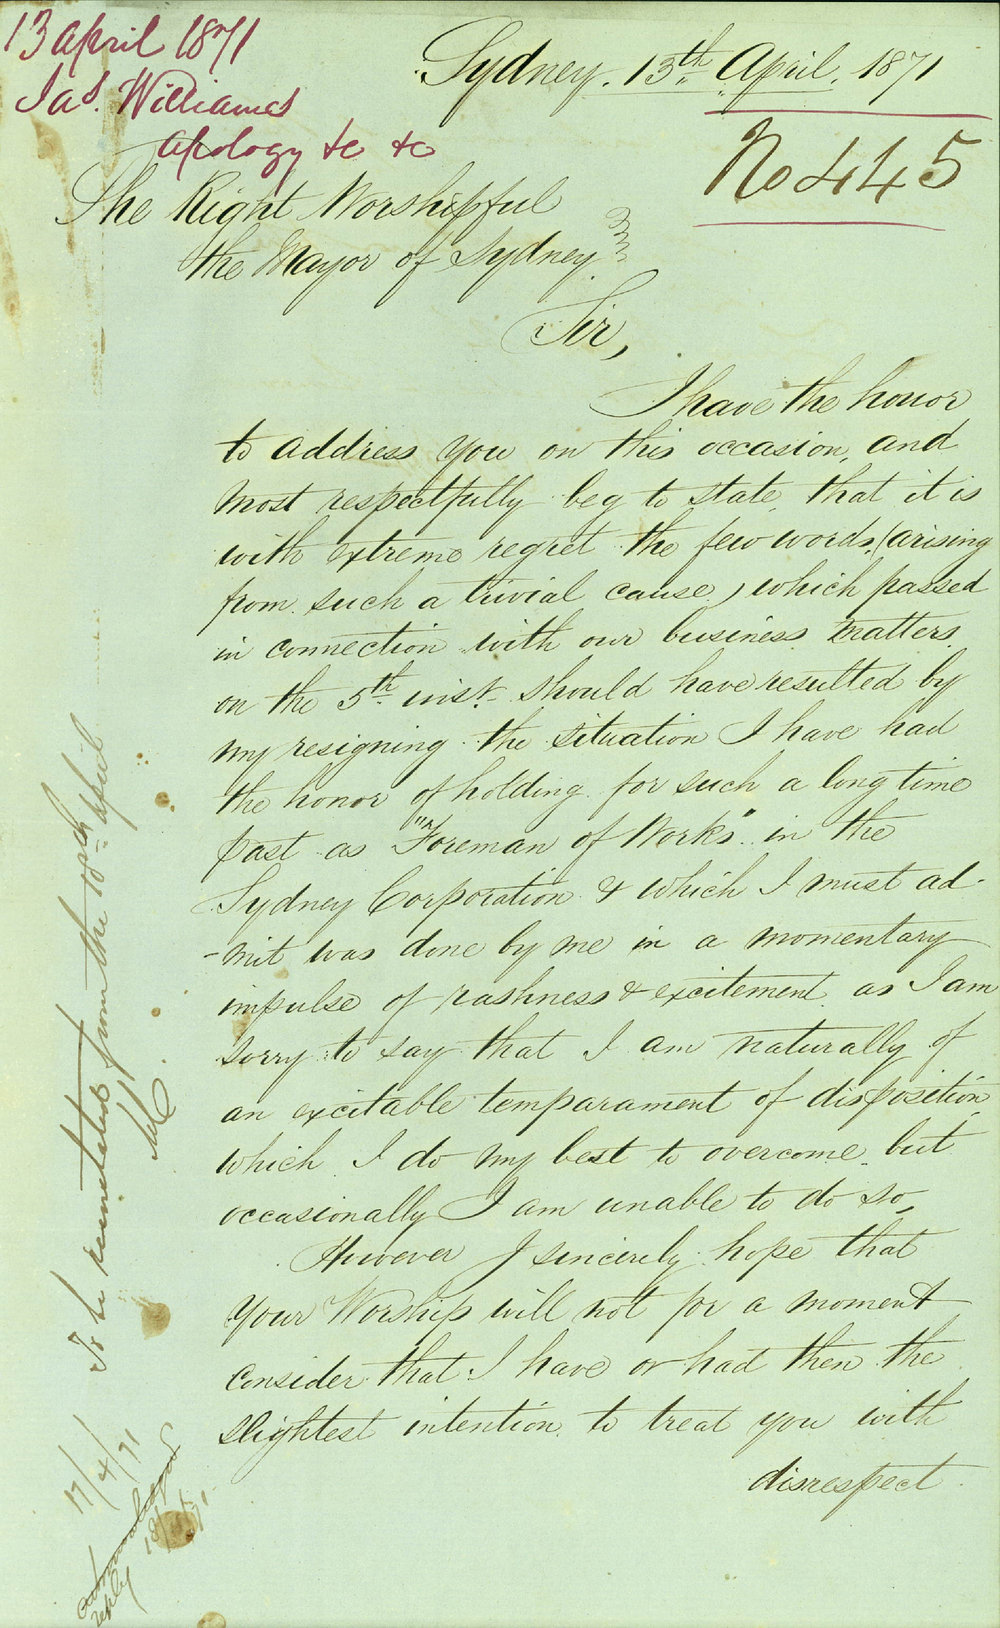 13 April 1871
Jas. Williams
apology &c &c
Sydney. 13th April. 1871
No 445
The Right Worshipful
the Mayor of Sydney
Sir,
I have the honor
to address you on this occasion, and
most respectfully beg to state, that it is
with extreme regret the few words, (arising
from such a trivial cause) which passed
in connection with our business matters
on the 5th inst. should have resulted by
my resigning the situation I have had
the honor of holding for such a long time
past as "Foreman of Works" in the
Sydney Corporation & which I must ad-
-mit was done by me in a momentary
impulse of rashness & excitement as I am
sorry to say that I am naturally of
an excitable temparament of disposition
which I do my best to overcome but
occasionally I am unable to do so,
However I sincerely hope that
your Worship will not for a moment
consider that I have or had then the
slightest intention to treat you with
disrespect
To be reinstated from the 10th April
17/4/71
reply